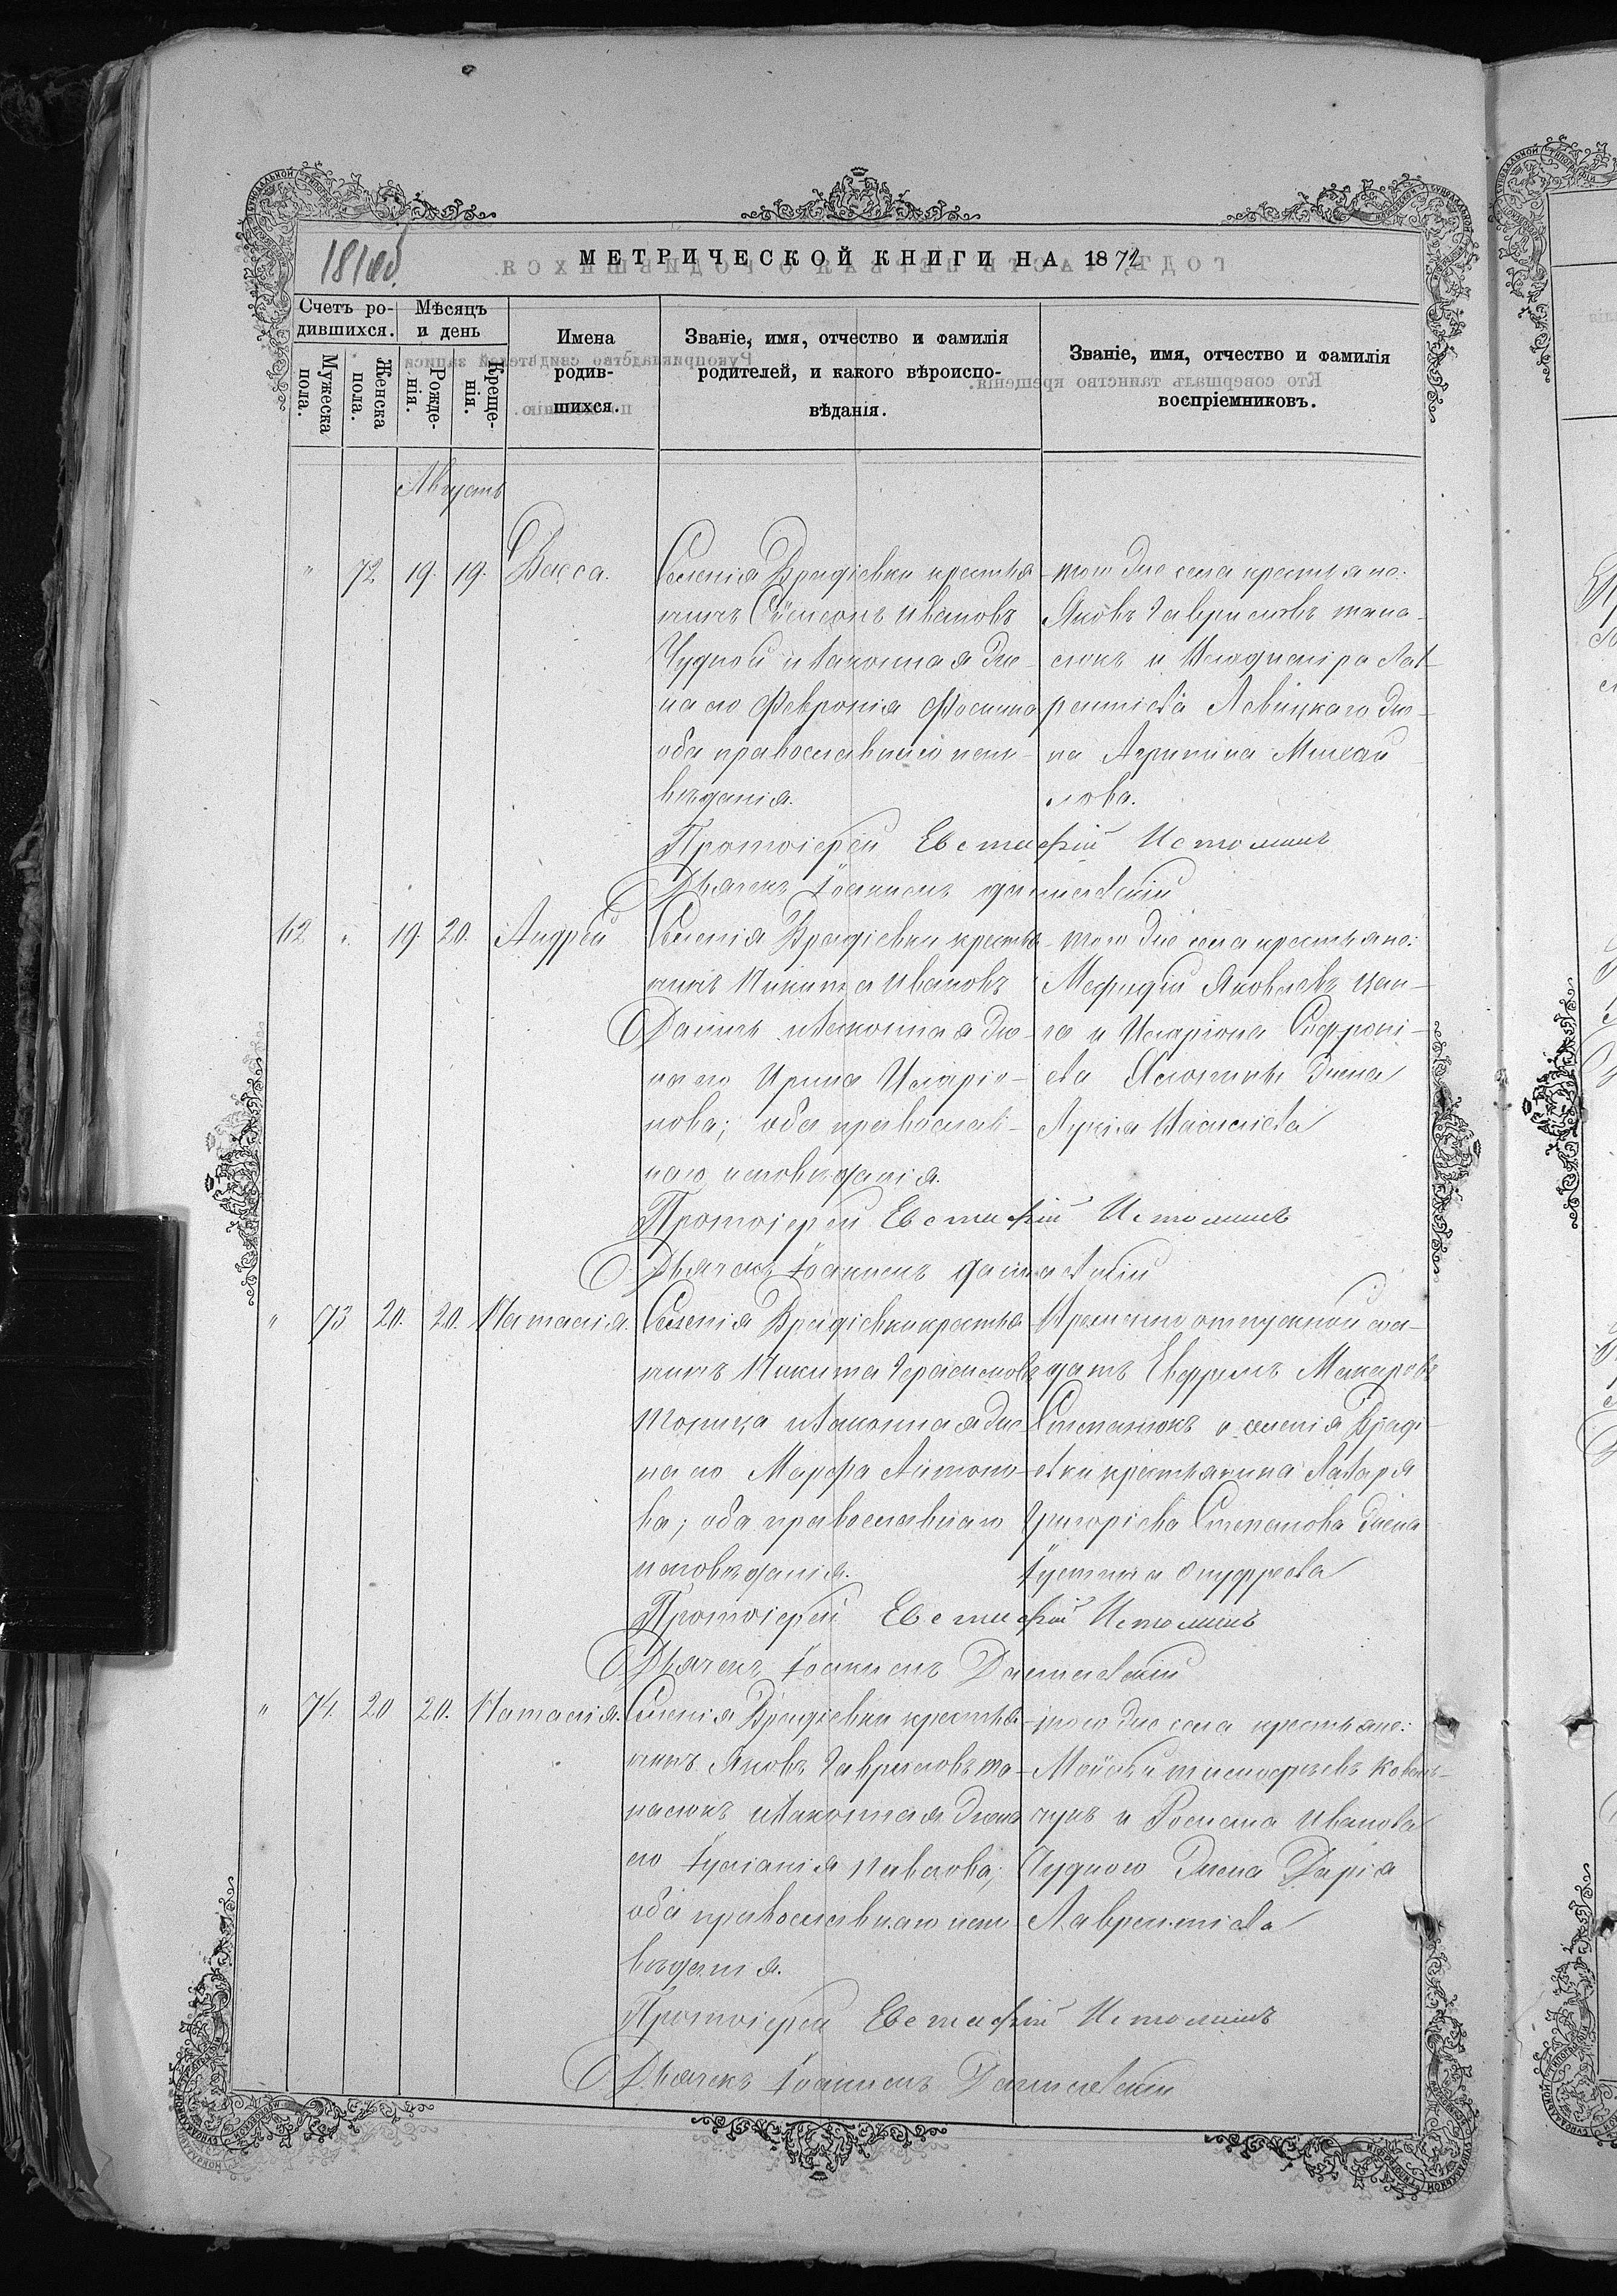 181 об.
МЕТРИЧЕСКОЙ КНИГИ НА 1872
Счетъ ро-
дившихся.
Мѣсяцъ
и день
Мужеска
пола.
Женска
пола.
Рожде-
нія.
Креще-
нія.
Имена
родив-
шихся.
Званіе, имя, отчество и фамилія
родителей, и какого вѣроиспо-
вѣданія.
Званіе, имя, отчество и фамилія
воспріемниковъ.
Августъ
" 72 19. 19. Васса. Селенія Врадіевки крестья-
нинъ Сѵмеонъ Ивановъ
Чудной и законная же-
на его Февронія Фомина
оба православнаго испо-
вѣданія.
того же села крестьяне:
Яковъ Гавриловъ тана-
сюкъ и Владиміра Лав-
рентіева Левицкаго же-
на Агрипина Михаи
лова.
Протоіерей Евстафій Истоминъ
Дьячекъ Іоакимъ Данилевскій
62 " 19. 20. Андрей Селенія Врадіевки крестья-
нинъ Никита Ивановъ
и законная же-
на его Ирина Иларіо-
нова; оба православ-
наго исповѣданія.
того же села крестьяне:
Мефодій Яковлевъ
и Иларіона Софроні-
ева жена
Лукія Василіева
Протоіерей Евстафій Истоминъ
Дьячекъ Іоакимъ Данилевскій
" 73 20. 20. Наталія. Селенія Врадіевки крестья-
нинъ Никита Герасимовъ
и законная же-
на его Марфа Антоно-
ва; оба православнаго
исповѣданія.
Временно отпускной сол-
датъ Евфремъ Макаровъ
и селенія Враді-
евки крестьянина Лазаря
Григоріева Степанова жена
Іустина Онуфреева
Протоіерей Евстафій Истоминъ
Дьячекъ Іоакимъ Данилевскій
" 74. 20 20. Наталія. Селенія Врадіевки крестья-
нинъ Яковъ Гавриловъ та-
насюкъ и законная жена
его Іуліанія Павлова;
оба православнаго испо
вѣданія.
того же села крестьяне:
Моѵсей тимофеевъ Коваль-
чукъ и Романа Иванова
Чудного жена Дарія
Лаврентіева
Протоіерей Евстафій Истоминъ
Дьячекъ Іоакимъ Данилевскій